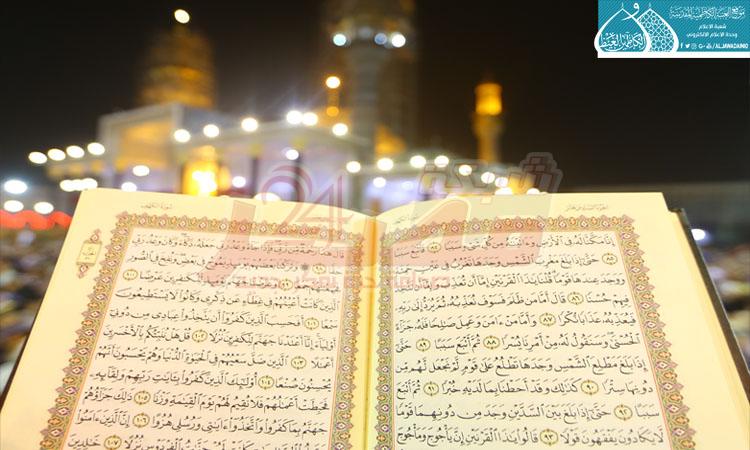 موقع العتبة الكاظمية المقدسة
شعبة الإعلام
وحدة الإعلام الإلكتروني
/ALJAWADAINIO
شبكة
24
سورة الكهف
إِنَّا مَكَّنَّا لَهُۥ فِى ٱلْأَرْضِ وَءَاتَيْنَٰهُ مِن كُلِّ شَىْءٍ سَبَبًا ٨٤ فَأَتْبَعَ سَبَبًا
٨٥ حَتَّىٰٓ إِذَا بَلَغَ مَغْرِبَ ٱلشَّمْسِ وَجَدَهَا تَغْرُبُ فِى عَيْنٍ حَمِئَةٍ
وَوَجَدَ عِندَهَا قَوْمًا قُلْنَا يَٰذَا ٱلْقَرْنَيْنِ إِمَّآ أَن تُعَذِّبَ وَإِمَّآ أَن تَتَّخِذَ
فِيهِمْ حُسْنًا ٨٦ قَالَ أَمَّا مَن ظَلَمَ فَسَوْفَ نُعَذِّبُهُۥ ثُمَّ يُرَدُّ إِلَىٰ رَبِّهِۦ
فَيُعَذِّبُهُۥ عَذَابًا نُّكْرًا ٨٧ وَأَمَّا مَنْ ءَامَنَ وَعَمِلَ صَٰلِحًا فَلَهُۥ جَزَآءً
ٱلْحُسْنَىٰ وَسَنَقُولُ لَهُۥ مِنْ أَمْرِنَا يُسْرًا ٨٨ ثُمَّ أَتْبَعَ سَبَبًا ٨٩ حَتَّىٰٓ
إِذَا بَلَغَ مَطْلِعَ ٱلشَّمْسِ وَجَدَهَا تَطْلُعُ عَلَىٰ قَوْمٍ لَّمْ نَجْعَل لَّهُم مِّن
دُونِهَا سِتْرًا ٩٠ كَذَٰلِكَ وَقَدْ أَحَطْنَا بِمَا لَدَيْهِ خُبْرًا ٩١ ثُمَّ أَتْبَعَ
سَبَبًا ٩٢ حَتَّىٰٓ إِذَا بَلَغَ بَيْنَ ٱلسَّدَّيْنِ وَجَدَ مِن دُونِهِمَا قَوْمًا
لَّا يَكَادُونَ يَفْقَهُونَ قَوْلًا ٩٣ قَالُوا۟ يَٰذَا ٱلْقَرْنَيْنِ إِنَّ يَأْجُوجَ وَمَأْجُوجَ
سورة الكهف
قَالَ هَٰذَا رَحْمَةٌ مِّن رَّبِّى فَإِذَا جَآءَ وَعْدُ رَبِّى جَعَلَهُۥ دَكَّآءَ وَكَانَ وَعْدُ رَبِّى
حَقًّا ٩٨ وَتَرَكْنَا بَعْضَهُمْ يَوْمَئِذٍ يَمُوجُ فِى بَعْضٍ وَنُفِخَ فِى ٱلصُّورِ
لِّلْكَٰفِرِينَ عَرْضًا ١٠٠
ٱلَّذِينَ كَانَتْ أَعْيُنُهُمْ فِى غِطَآءٍ عَن ذِكْرِى وَكَانُوا۟ لَا يَسْتَطِيعُونَ
سَمْعًا ١٠١ أَفَحَسِبَ ٱلَّذِينَ كَفَرُوٓا۟ أَن يَتَّخِذُوا۟ عِبَادِى مِن دُونِىٓ
أَوْلِيَآءَ إِنَّآ أَعْتَدْنَا جَهَنَّمَ لِلْكَٰفِرِينَ نُزُلًا ١٠٢ قُلْ هَلْ نُنَبِّئُكُم بِٱلْأَخْسَرِينَ
أَعْمَٰلًا ١٠٣ ٱلَّذِينَ ضَلَّ سَعْيُهُمْ فِى ٱلْحَيَوٰةِ ٱلدُّنْيَا وَهُمْ يَحْسَبُونَ أَنَّهُمْ
يُحْسِنُونَ صُنْعًا ١٠٤ أُو۟لَٰٓئِكَ ٱلَّذِينَ كَفَرُوا۟ بِـَٔايَٰتِ رَبِّهِمْ وَلِقَآئِهِۦ
فَحَبِطَتْ أَعْمَٰلُهُمْ فَلَا نُقِيمُ لَهُمْ يَوْمَ ٱلْقِيَٰمَةِ وَزْنًا ١٠٥ ذَٰلِكَ جَزَآؤُهُمْ
جَهَنَّمُ بِمَا كَفَرُوا۟ وَٱتَّخَذُوٓا۟ ءَايَٰتِى وَرُسُلِى هُزُوًا ١٠٦ إِنَّ ٱلَّذِينَ ءَامَنُوا۟
جَنَّٰتُ ٱلْفِرْدَوْسِ نُزُلًا ١٠٧ خَٰلِدِينَ